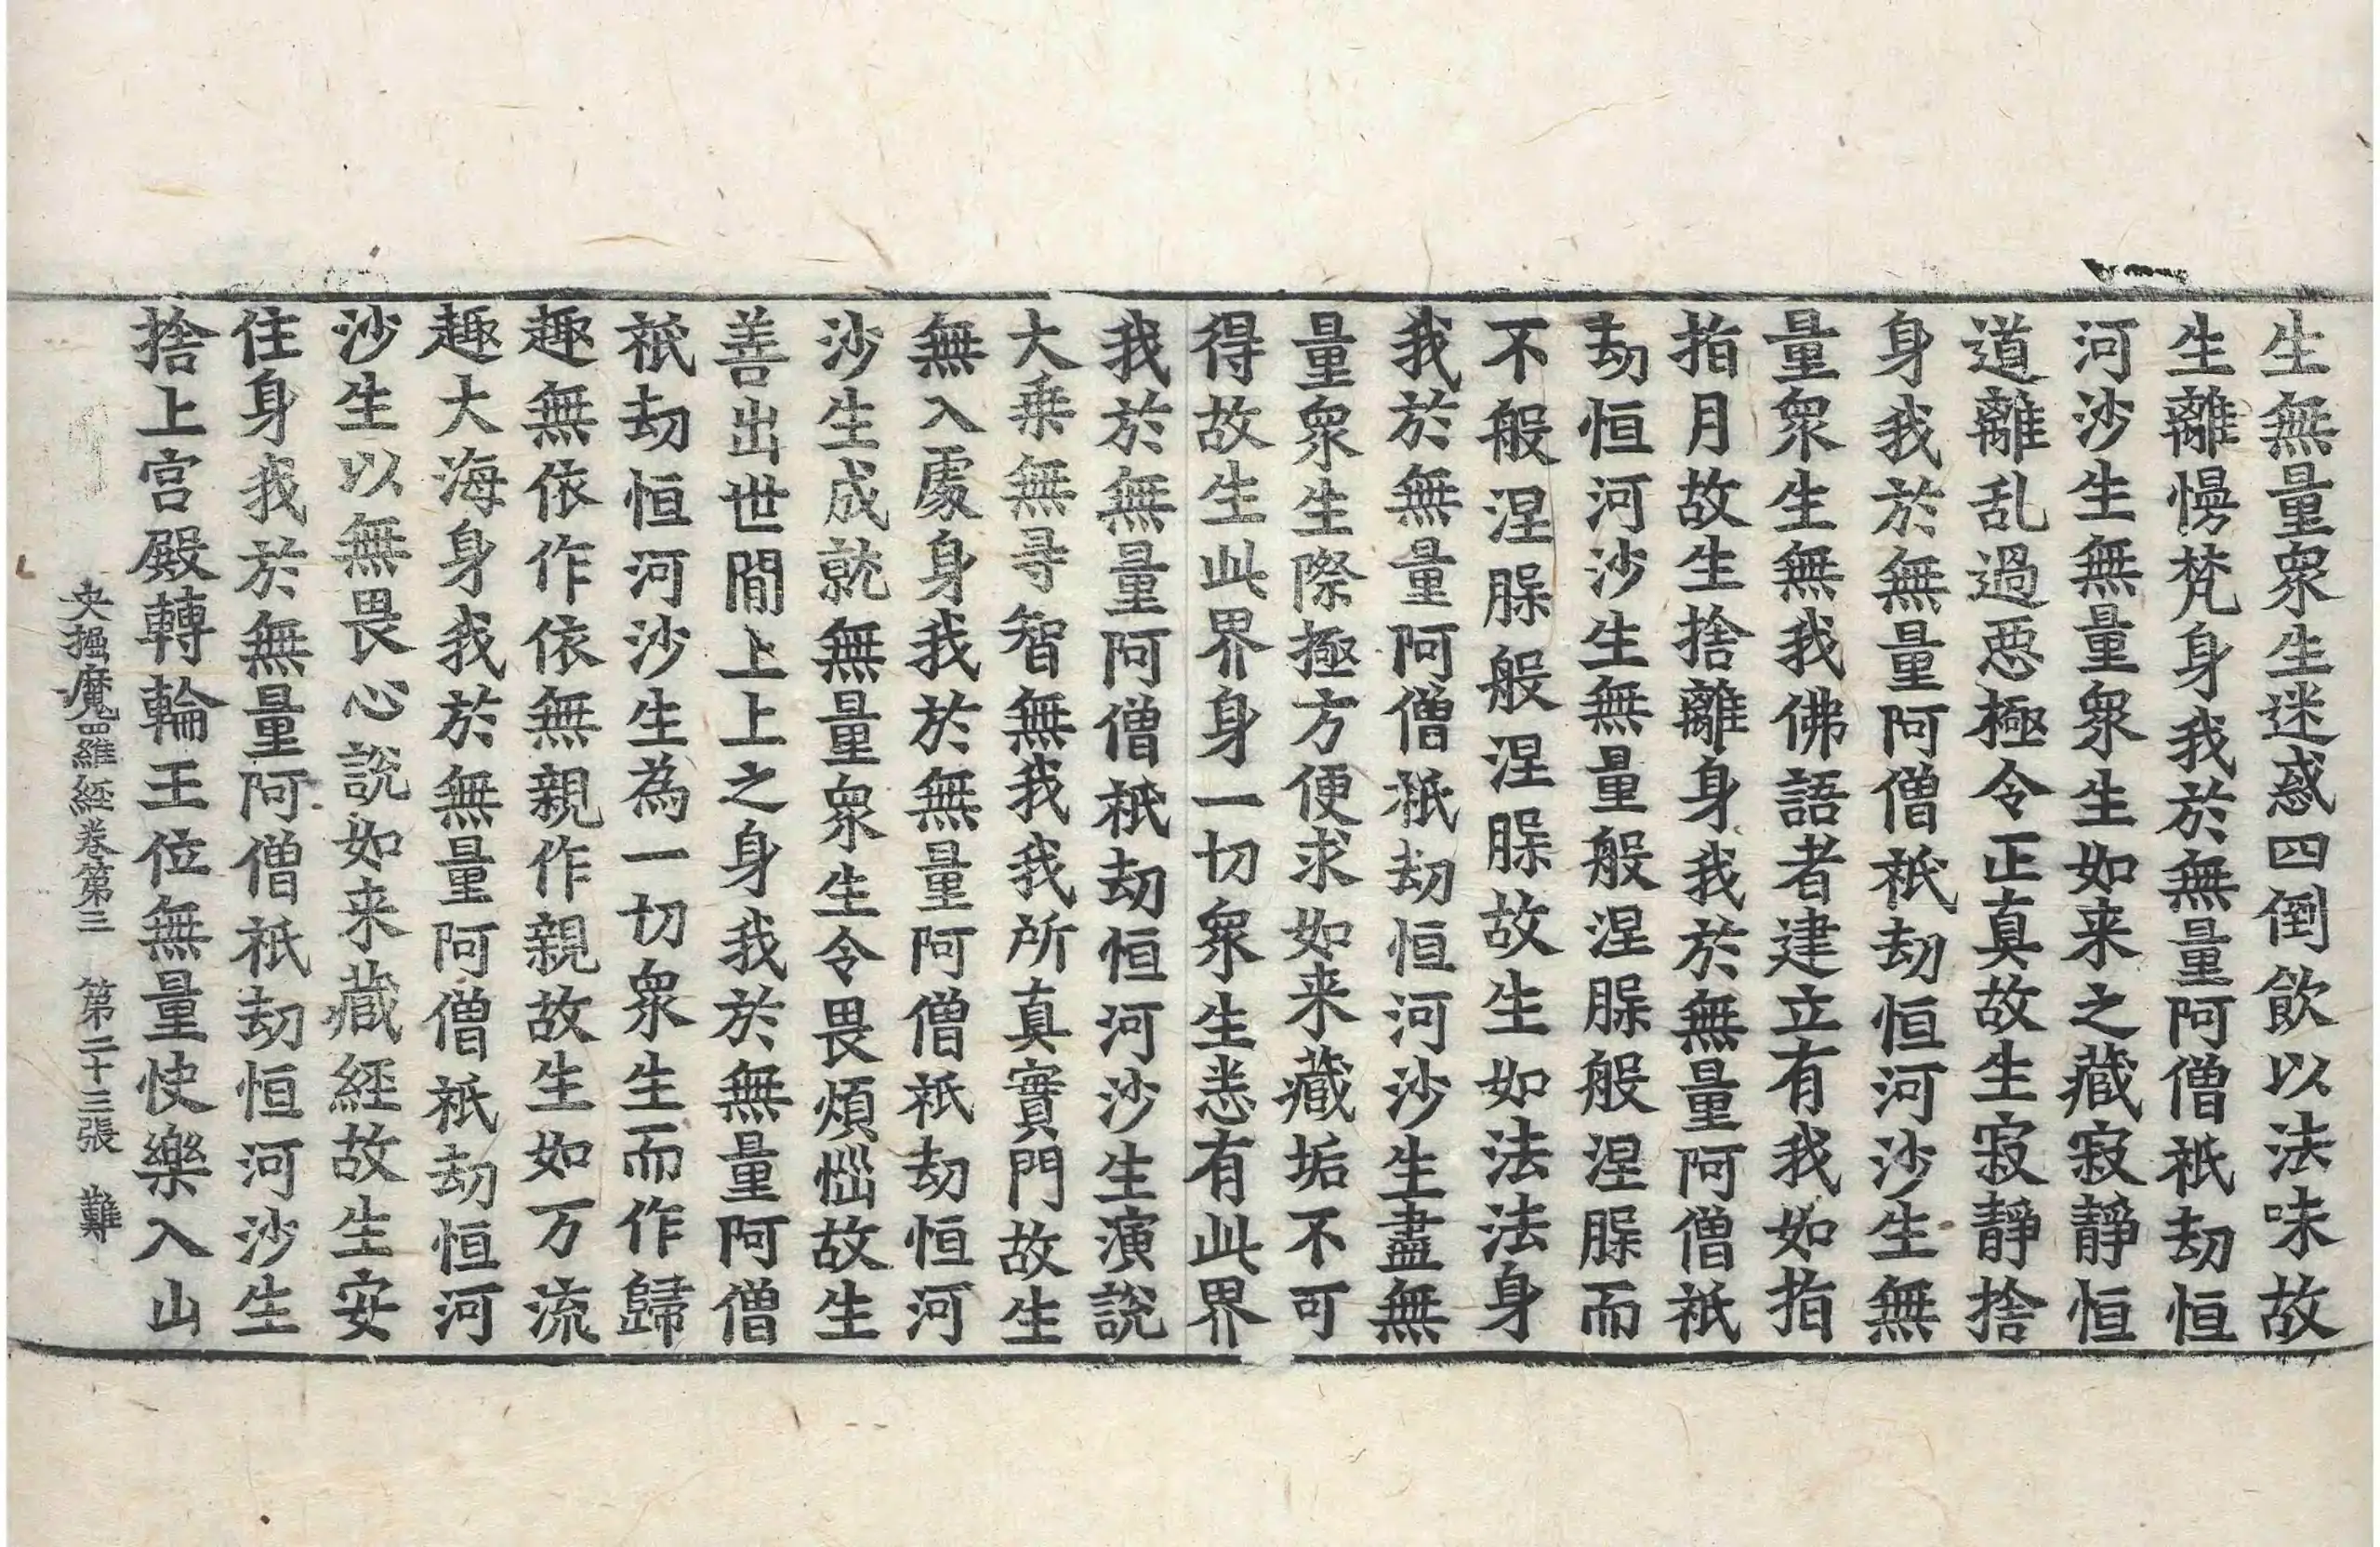 生無量衆生迷惑四倒飲以法味故
生離慢梵身我於無量阿僧祇劫恒
河沙生無量衆生如来之藏寂靜恒
道離乱過惡極令正真故生寂靜捨
身我於無量阿僧祇劫恒河沙生無
量衆生無我佛語者建立有我如指
指月故生捨離身我於無量阿僧祇
劫恒河沙生無量般涅脲般涅脲而
不般涅脲般涅脲故生如法法身
我於無量阿僧祇劫恒河沙生盡無
量衆生際極方便求如来藏垢不可
得故生此界身一切衆生悉有此界
我於無量阿僧祇劫恒河沙生演說
大乗無㝵智無我我所真實門故生
無入處身我於無量阿僧祇劫恒河
沙生成就無量衆生令畏煩惱故生
善出世間上上之身我於無量阿僧
祇劫恒河沙生為一切衆生而作歸
趣無依作依無親作親故生如万流
趣大海身我於無量阿僧祇劫恒河
沙生以無畏心說如来藏經故生安
住身我於無量阿僧祇劫恒河沙生
捨上宮殿轉輪王位無量快樂入山
央掘魔羅経卷第三 第二十三張 難